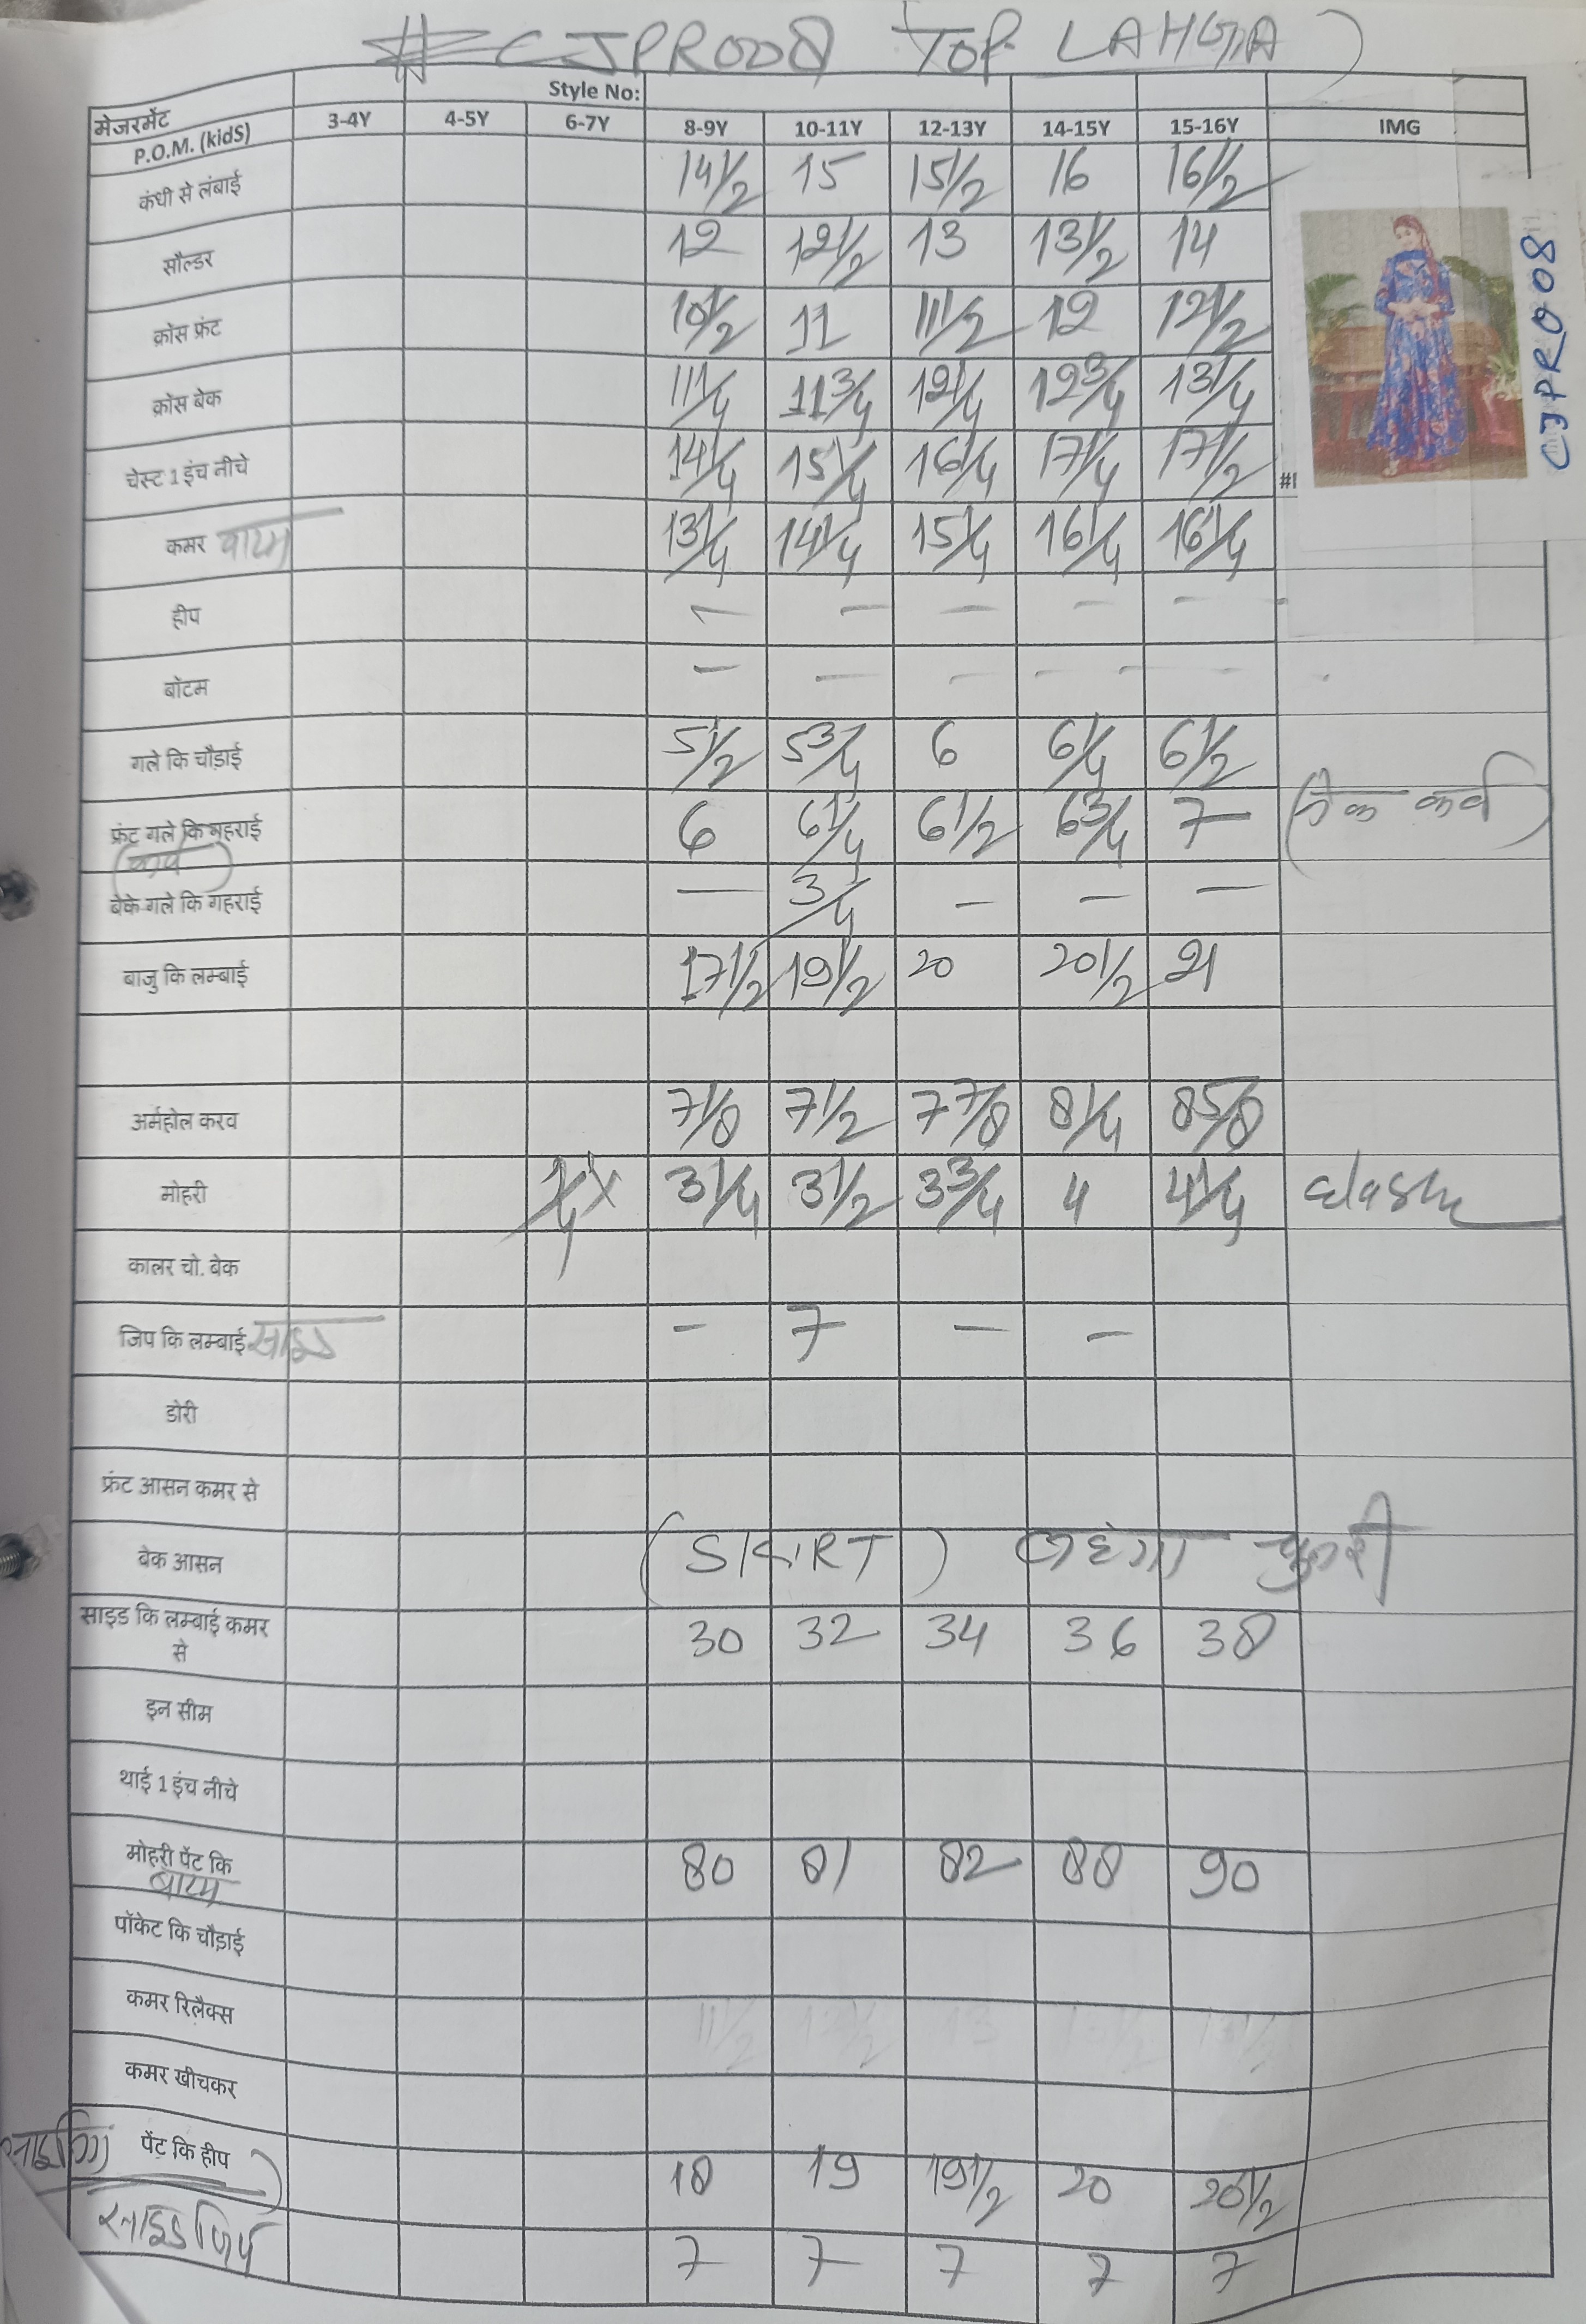 # CJPR008 TOP LAHGA)
Style No:
मेजरमेंट P.O.M. (kidS) 3-4Y 4-5Y 6-7Y 8-9Y 10-11Y 12-13Y 14-15Y 15-16Y IMG
कंधी से लंबाई 14 1/2 15 15 1/2 16 16 1/2
सौल्डर 12 12 1/2 13 13 1/2 14
CJPR008
क्रोस फ्रंट 10 1/2 11 11 1/2 12 12 1/2
क्रोस बेक 11 1/4 11 3/4 12 1/4 12 3/4 13 1/4
चेस्ट 1 इंच नीचे 14 1/4 15 1/4 16 1/4 17 1/4 17 1/2 #I
कमर 13 1/4 14 1/4 15 1/4 16 1/4 16 1/4
हीप — — — — —
बॉटम — — — — —
गले कि चौड़ाई 5 1/2 5 3/4 6 6 1/4 6 1/2
फ्रंट गले कि गहराई 6 6 1/4 6 1/2 6 3/4 7 (नेक कर्व)
बेक गले कि गहराई — 3/4 — — —
बाजु कि लम्बाई 17 1/2 19 1/2 20 20 1/2 21
अर्महोल करव 7 1/8 7 1/2 7 7/8 8 1/4 8 5/8
मोहरी 3 1/4 3 1/2 3 3/4 4 4 1/4 elastic
कालर चो. बेक
जिप कि लम्बाई साइड - 7 — —
डोरी
फ्रंट आसन कमर से
बेक आसन (SKIRT) लहंगा चुनरी
साइड कि लम्बाई कमर से 30 32 34 36 38
इन सीम
थाई 1 इंच नीचे
मोहरी पेंट कि 80 81 82 88 90
बाटम
पॉकेट कि चौड़ाई
कमर रिलैक्स
कमर खीचकर
पेंट कि हीप 18 19 19 1/2 20 20 1/2
साइड जिप 7 7 7 7 7